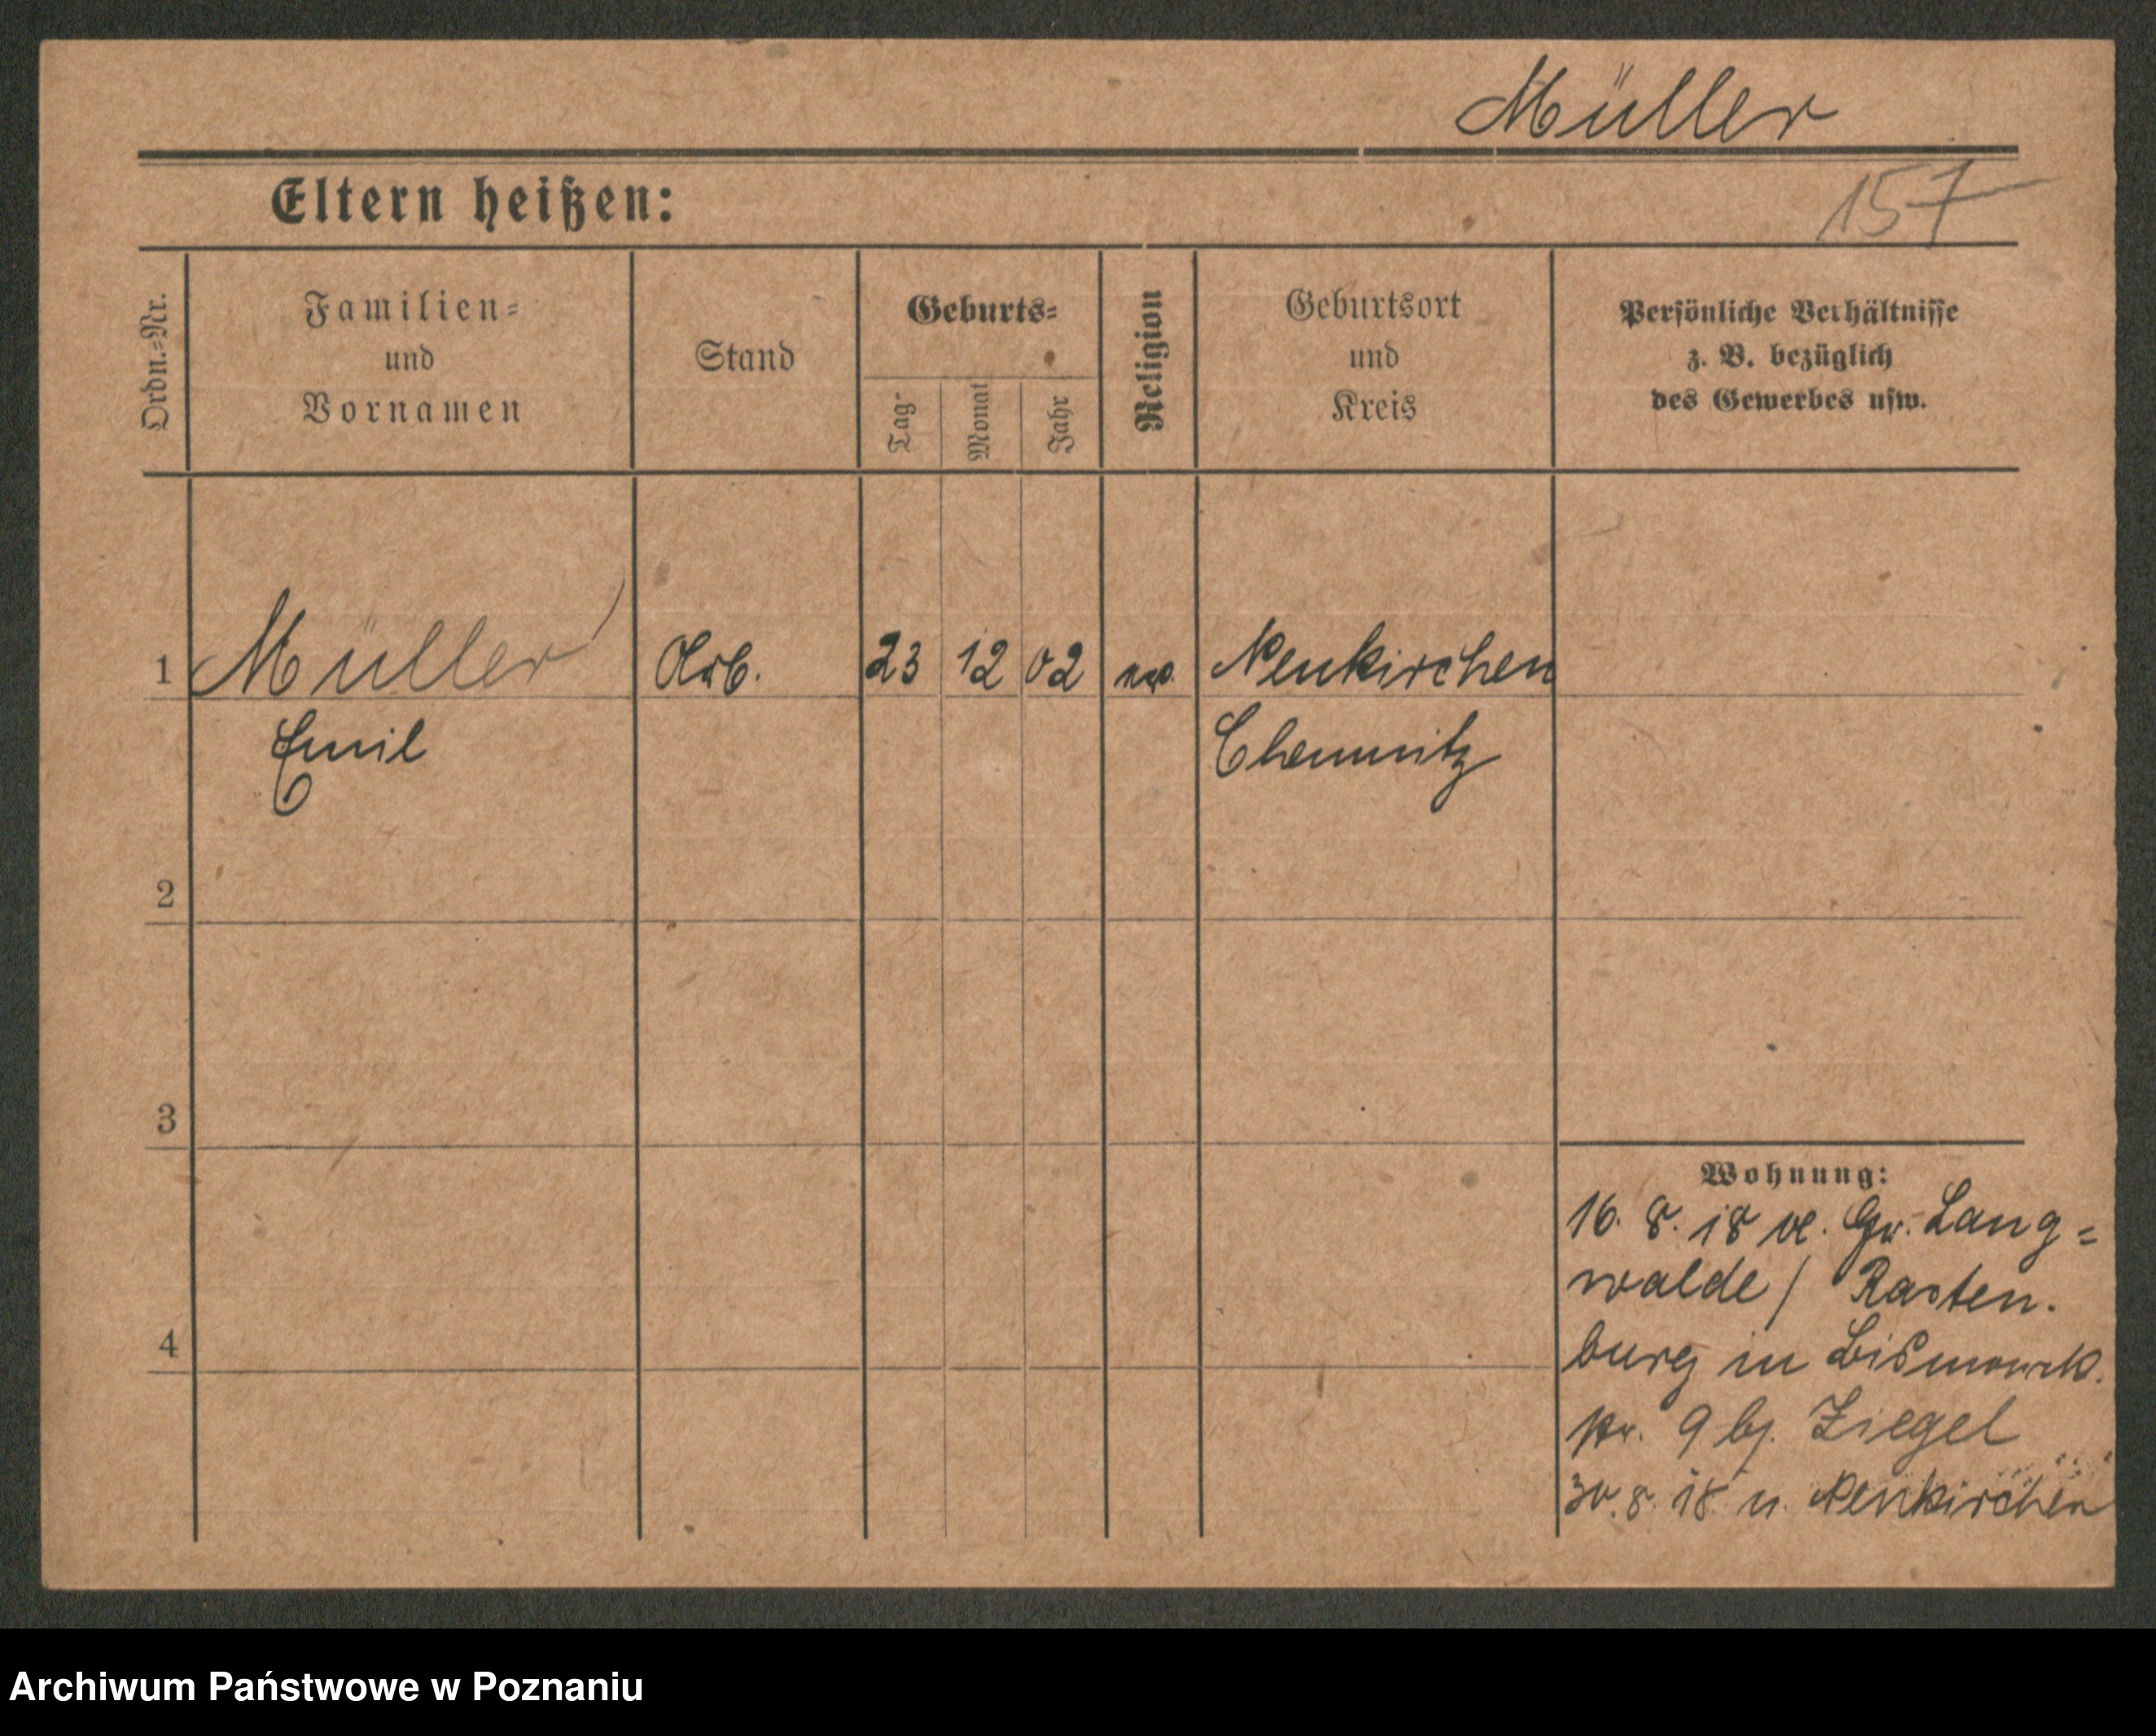 Müller
157
Eltern heißen:
Ordn.-Nr.
Familien-
und
Vornamen
Stand
Geburts-
Tag-
Monat
Jahr
Religion
Geburtsort
und
Kreis
Persönliche Verhältnisse
z. B. bezüglich
des Gewerbes usw.
1 Müller Arb. 23 12 02 Neukirchen
Emil Chemnitz
2
3
Wohnung:
16. 8. 18 v. Gr. Lang=
walde / Rasten.
4
burg in Bismarck.
str. 9 bj. Ziegel
30. 8. 18 n. Neukirchen
Archiwum Państwowe w Poznaniu